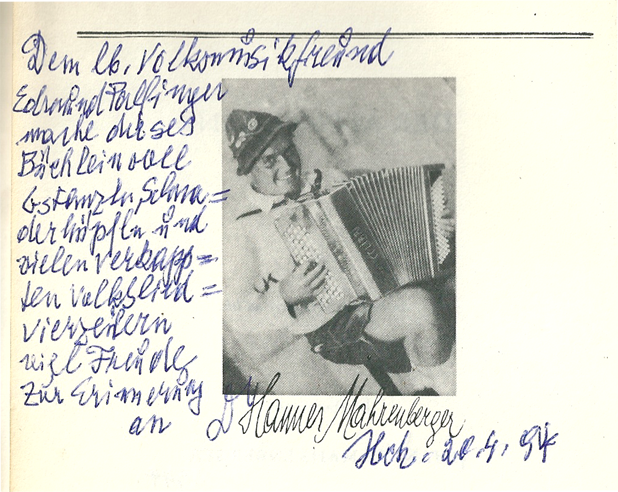 Dem lb. Volksmusikfreund
Edmund Palfinger
mache dieses
Büchlein voll
Gstanzln, Schna=
derhüpfln und
vielen verkapp=
ten Volkslied=
vierzeilern
viel Freude
Zur Erinnerung
an Hannes Mahrenberger
20.4.94